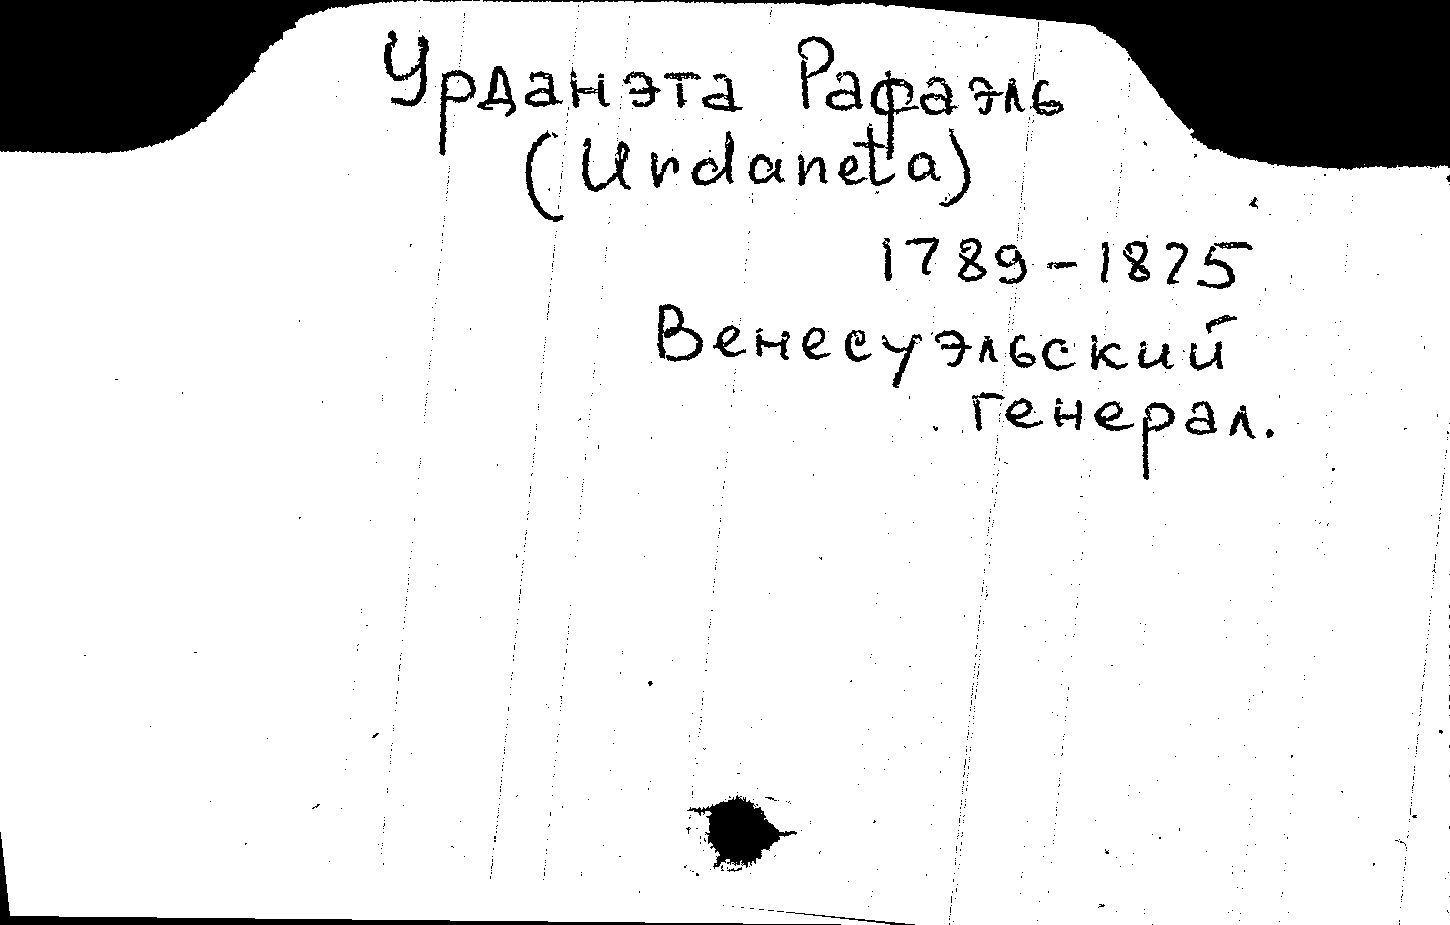 Урданэта Рафаэль
(Urdaneta)
1789-1825
Венесуэльский
генерал.